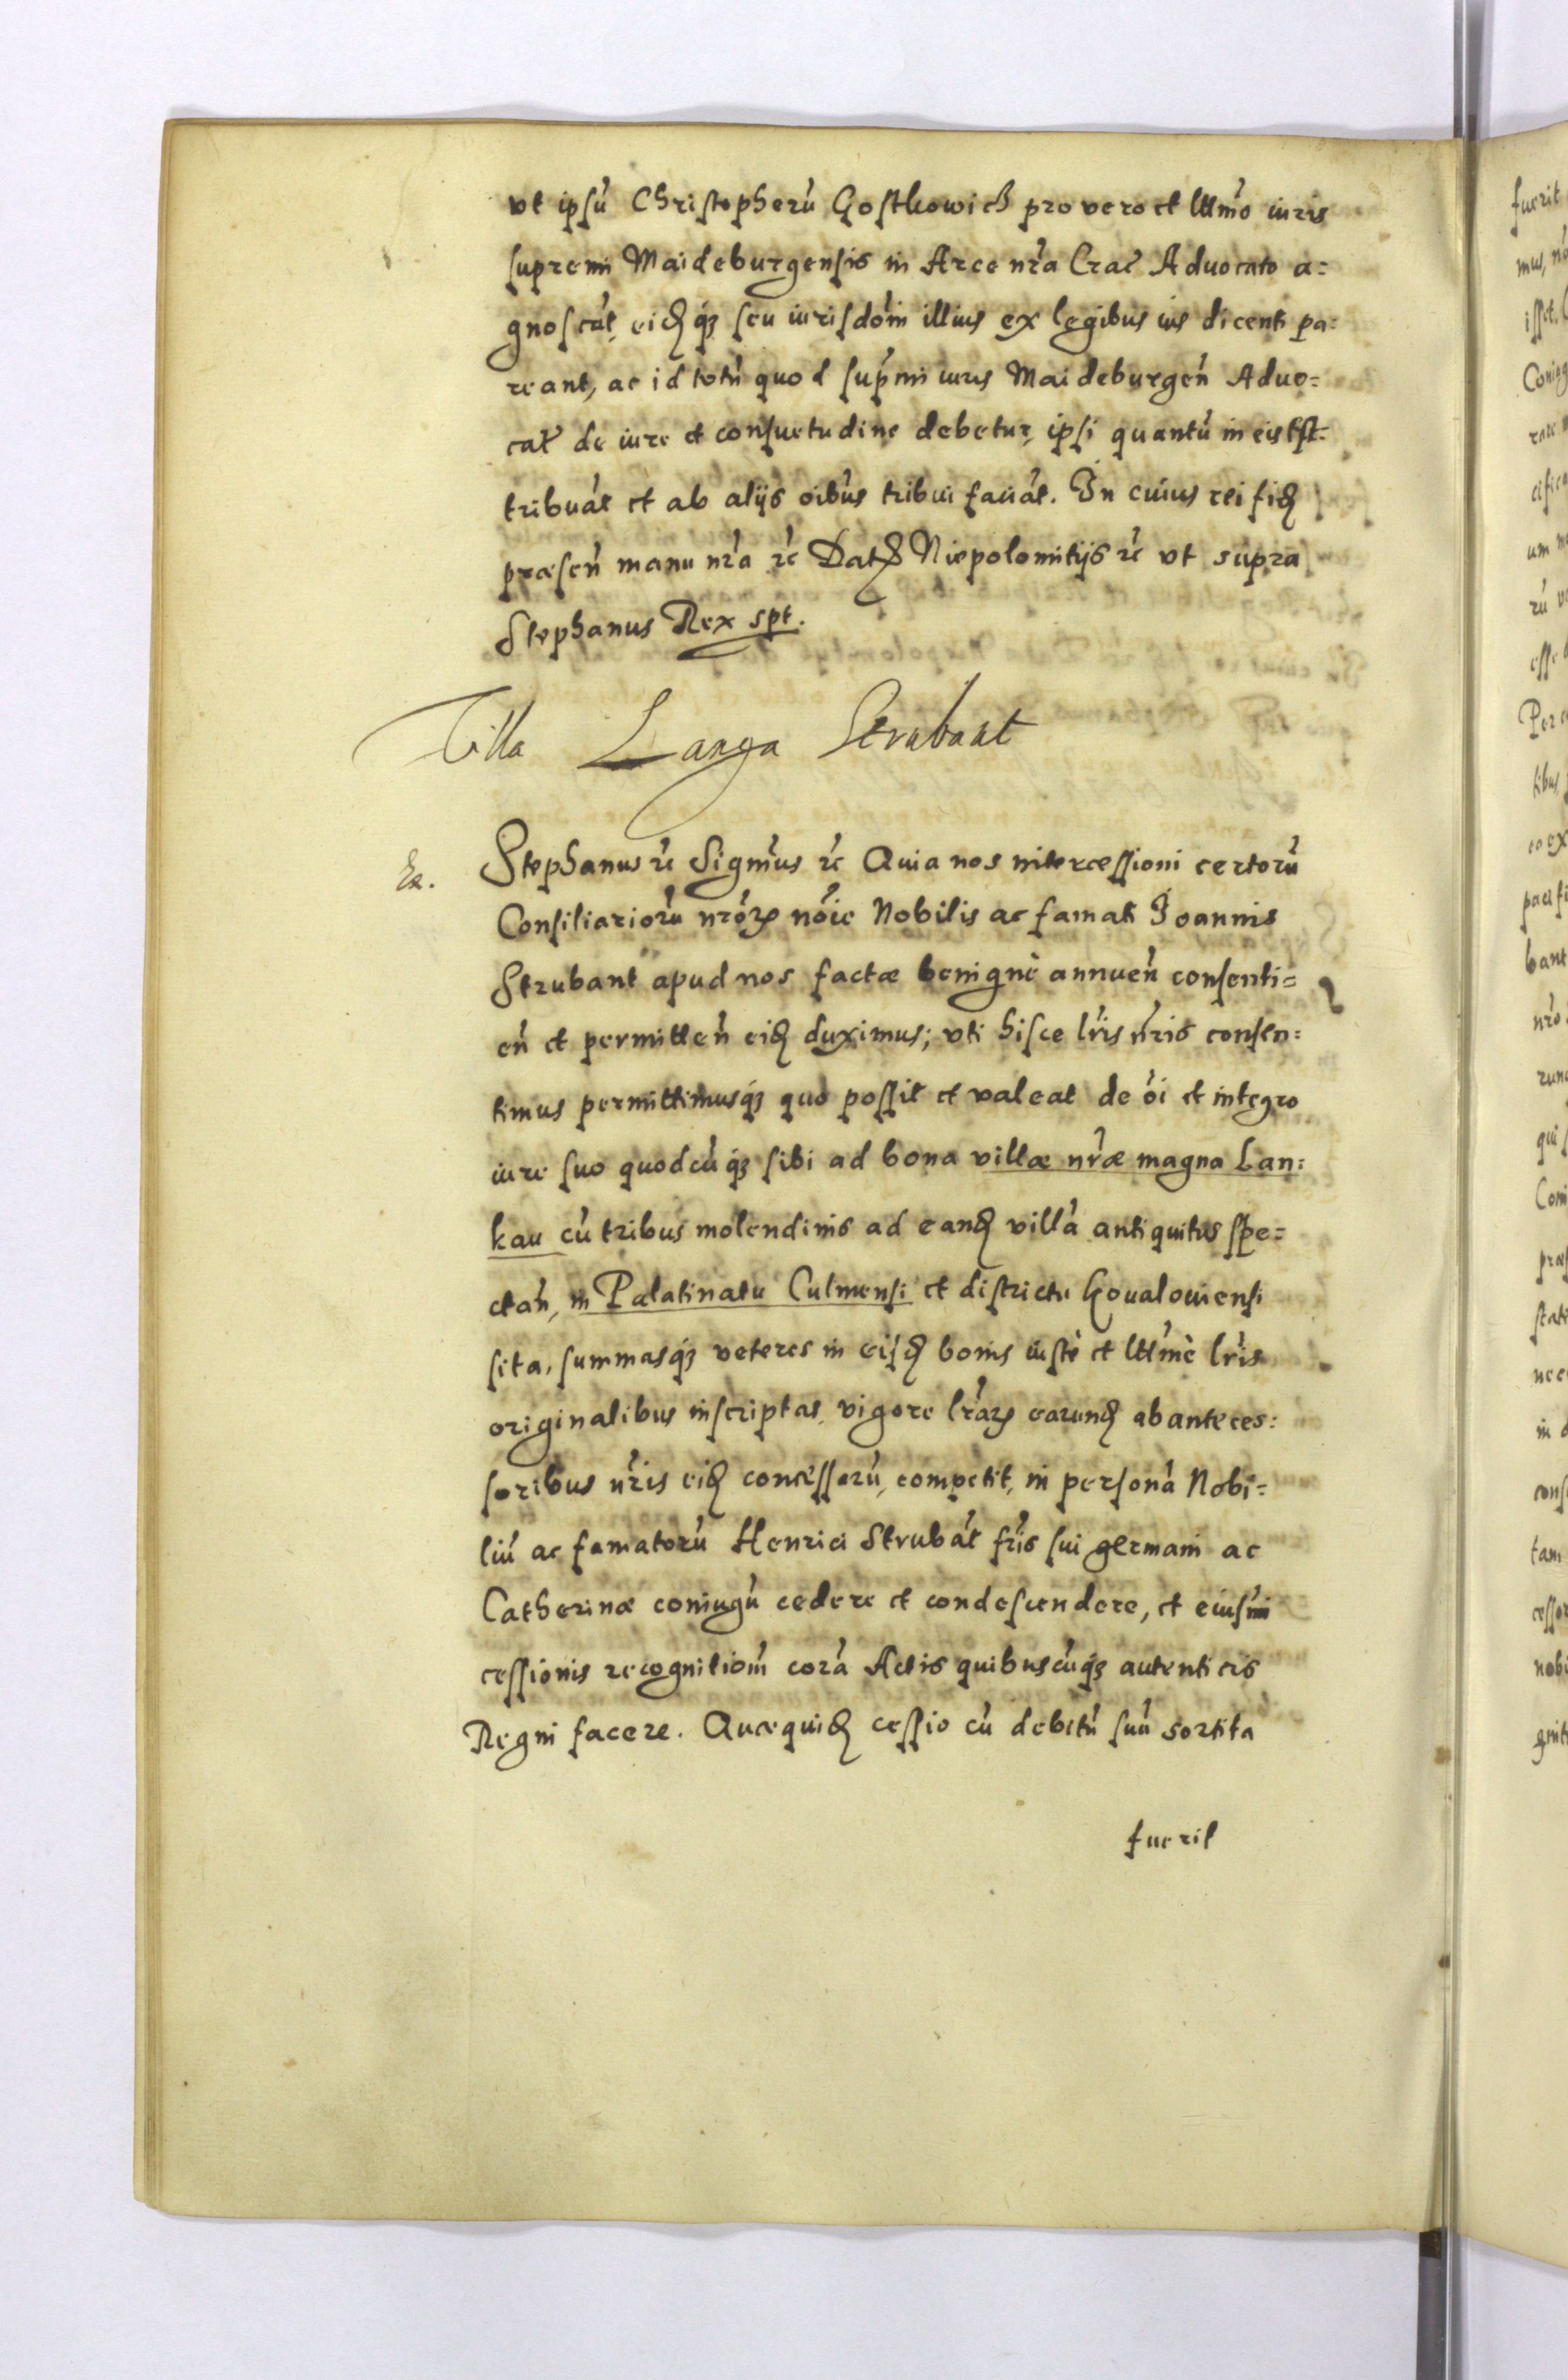 vt ipsũ Christopherũ Gostkowicz pro vero et lttmo iuris
supremi Maideburgensis in Arce nra Crac Aduocato a=
gnoscãt, eidq3 seu iurisdoni illius ex legibus ius dicenti pa=
reant, ac id totũ quod supmi iuris Maideburgen Aduo=
cat de iure et consuetudine debetur, ipsi quantũ in eis est
tribuãt et ab alijs oibus tribui faciãt. In cuius rei fid
præsen manu nra rc Dat Niepolomitijs rc vt supra
Stephanus Rex spt.
Villa Langa Strubant
Stephanus rc Signmus rc Quia nos intercessioni certorũ
Consiliariorũ nror noie Nobilis ac famati Joannis
Strubant apud nos factæ benignè annuen consenti=
en et permitten eid duximus; vti hisce lris nris consen=
timus permittimusq3 quo possit et valeat de oi et integro
iure suo quodcũq3 sibi ad bona villæ nræ magna Lan=
kau cũ tribus molendinis ad eand villã antiquitus spe=
ctan, in Palatinatu Culmensi et districtu Koualouiensi
sita, summasq3 veteres in eisd bonis iustè et lttmè lris
originalibus inscriptas, vigore lrar earund ab anteces=
soribus nris eid concessarũ, competit, in personã Nobi=
liũ ac famatorũ Henrici Strubãt fris sui germani ac
Catherinæ coniugũ cedere et condescendere, et eiusmi
cessionis recognitiom corã Actis quibuscũq3 autenticis
Regni facere. Quæquid cessio cũ debitũ suũ sortita
fuerit